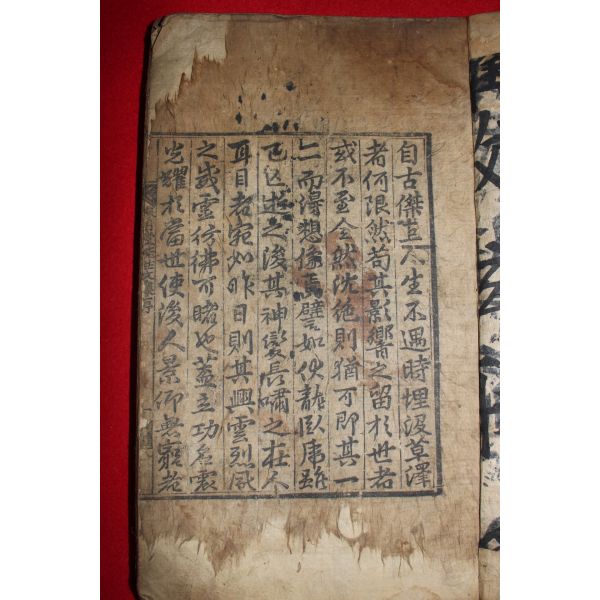 自古傑立人生不遇時埋沒草澤
者何限然苟其影響之留於世者
或不至全然沈絶則猶可即其一
二而漫想像焉譬如伏龍臥虎雖
已亡逝之後其神變長嘯之在人
耳目者宛如昨日則其興雲烈風
之威靈彷彿可睹也蓋立功名震
光耀於當世使後人景仰無窮者